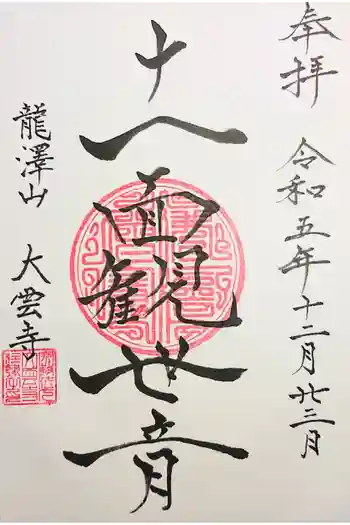 奉拝 令和五年十二月廿三日
十一面観世音
龍澤山 大雲寺